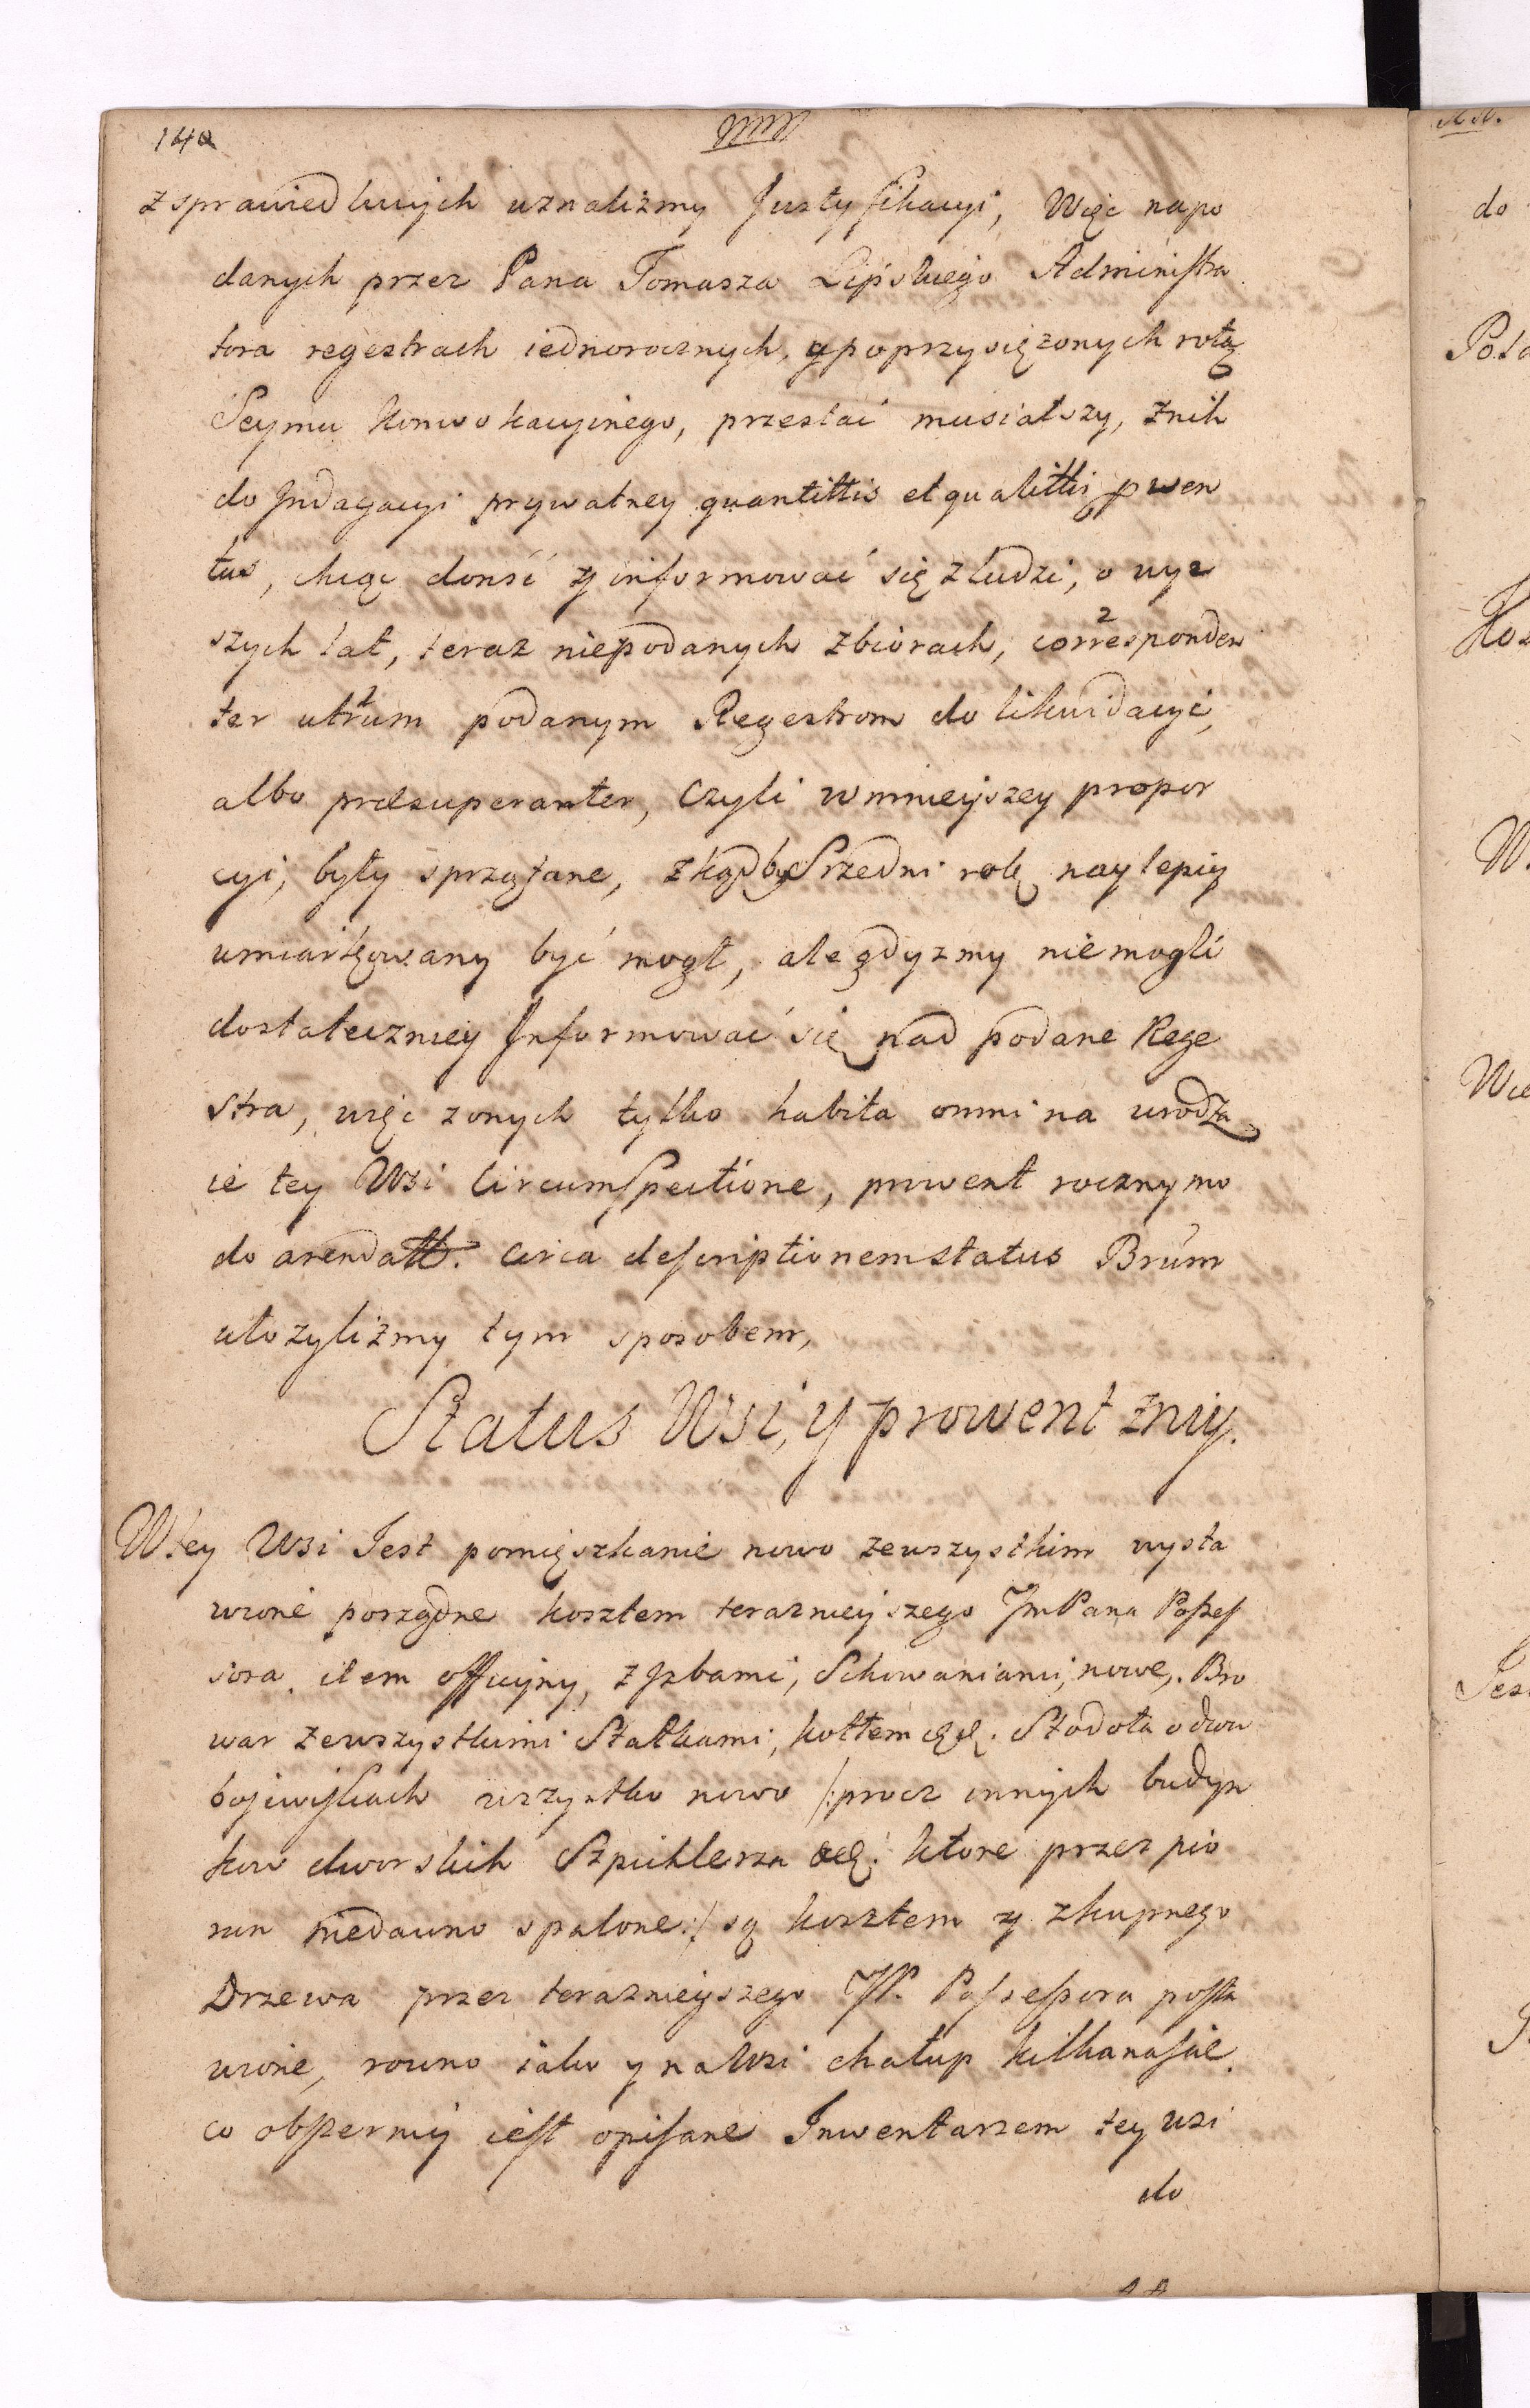 140
z sprawiedliwych uznaliżmy Justyfikacyi, Więc napo
danych przez Pana Tomasza Lipskiego Administra
tora regestrach iednorocznych, y poprzysiężonych rotą
Seymu Konwokacyinego, przestać musiałszy, znik
do Jndagacyi prywatney quantittis et qualittis prwen
tus, chcąc donść y informować się z ludzi, o wyż
szych lat, teraz niepodanych zbiorach, corresponden
ter utrum podanym Regestrom do likwidacyi,
albo praesuperanter, czyli w mnieyszey propor
cyi, były sprzątane, zkądby Srzedni rok naylepiy
umiarkowany być mogł, ale gdyżmy niemogli
dostateczniey Jnformować się nad podane Rege
stra, więc z onych tylko habita omni na urodza
ie tey Wsi Circumspectione, prowent roczny mo
do arendatt. circa descriptionem status Brum
ułożyliżmy tym sposobem,
Status Wsi, y prowent zniy.
W tey Wsi Jest pomięszkanie nowo zewszystkim wysta
wione porządne kosztem teraznieyszego JmPana Possess
sora, item officyny, z Jzbami, Schowaniami, nowe,. Bro
war zewszystkimi Statkami, kotłem &c. Stodoła o dwu
bojewiskach wszystko nowo /:procz innych budyn
kow dworskich Szpichlerza &c: ktore przez pio
run niedawno spalone:/ są kosztem y zkupnego
Drzewa przez teraznieyszego JP. Possessora posta
wione, rowno iako y na Wsi chałup kilkanaście.
co obszerniy iest opisane Jnwentarzem tey wsi
do